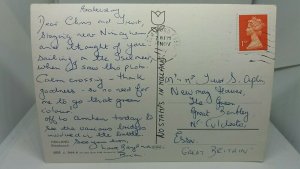 Saturday
Dear Chris and Trevor,
Staying near Nimegen
and thought of you
sailing on the Iselmeer
when I saw this photo.
Calm crossing - thank
goodness - so no need for
me to go that green
colour.
off to Arnhem today to
see the various bridges
involved in the battle.
See you soon,
Love
NO STAMPS IN HOLLAND
Mr & Mrs Trevor S. Aplin
Newmay House,
The Green
Great Bentley
Nr Colchester
Essex
GREAT BRITAIN
HOLLAND
NOV